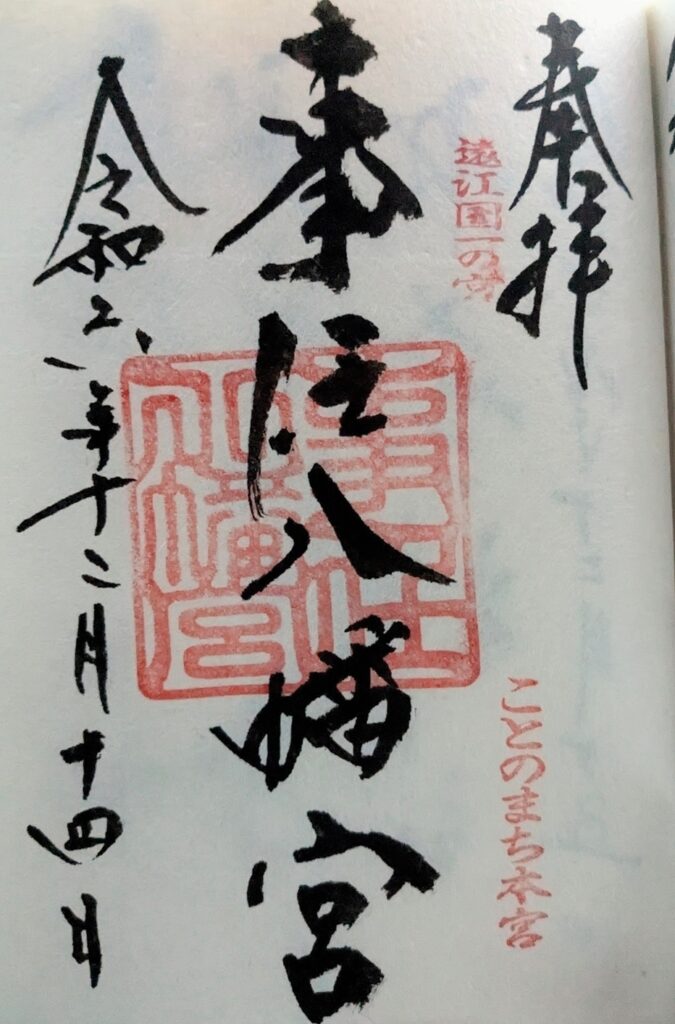 奉拝
遠江国一の宮
ことのまち本宮
事任八幡宮
事任八幡宮
令和二年十二月十四日